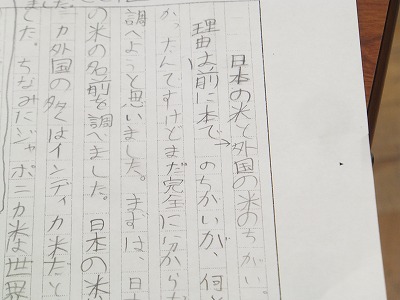 日本の米と外国の米のちがい
理由は前に本で→のちがいが、何と
かったんですけどまだ完全に分からな
調べようと思いました。まずは、日
の米の名前を調べました。日本の米
した。外国の多くはインディカ米だと
ました。ちなみにジャポニカ米は世界